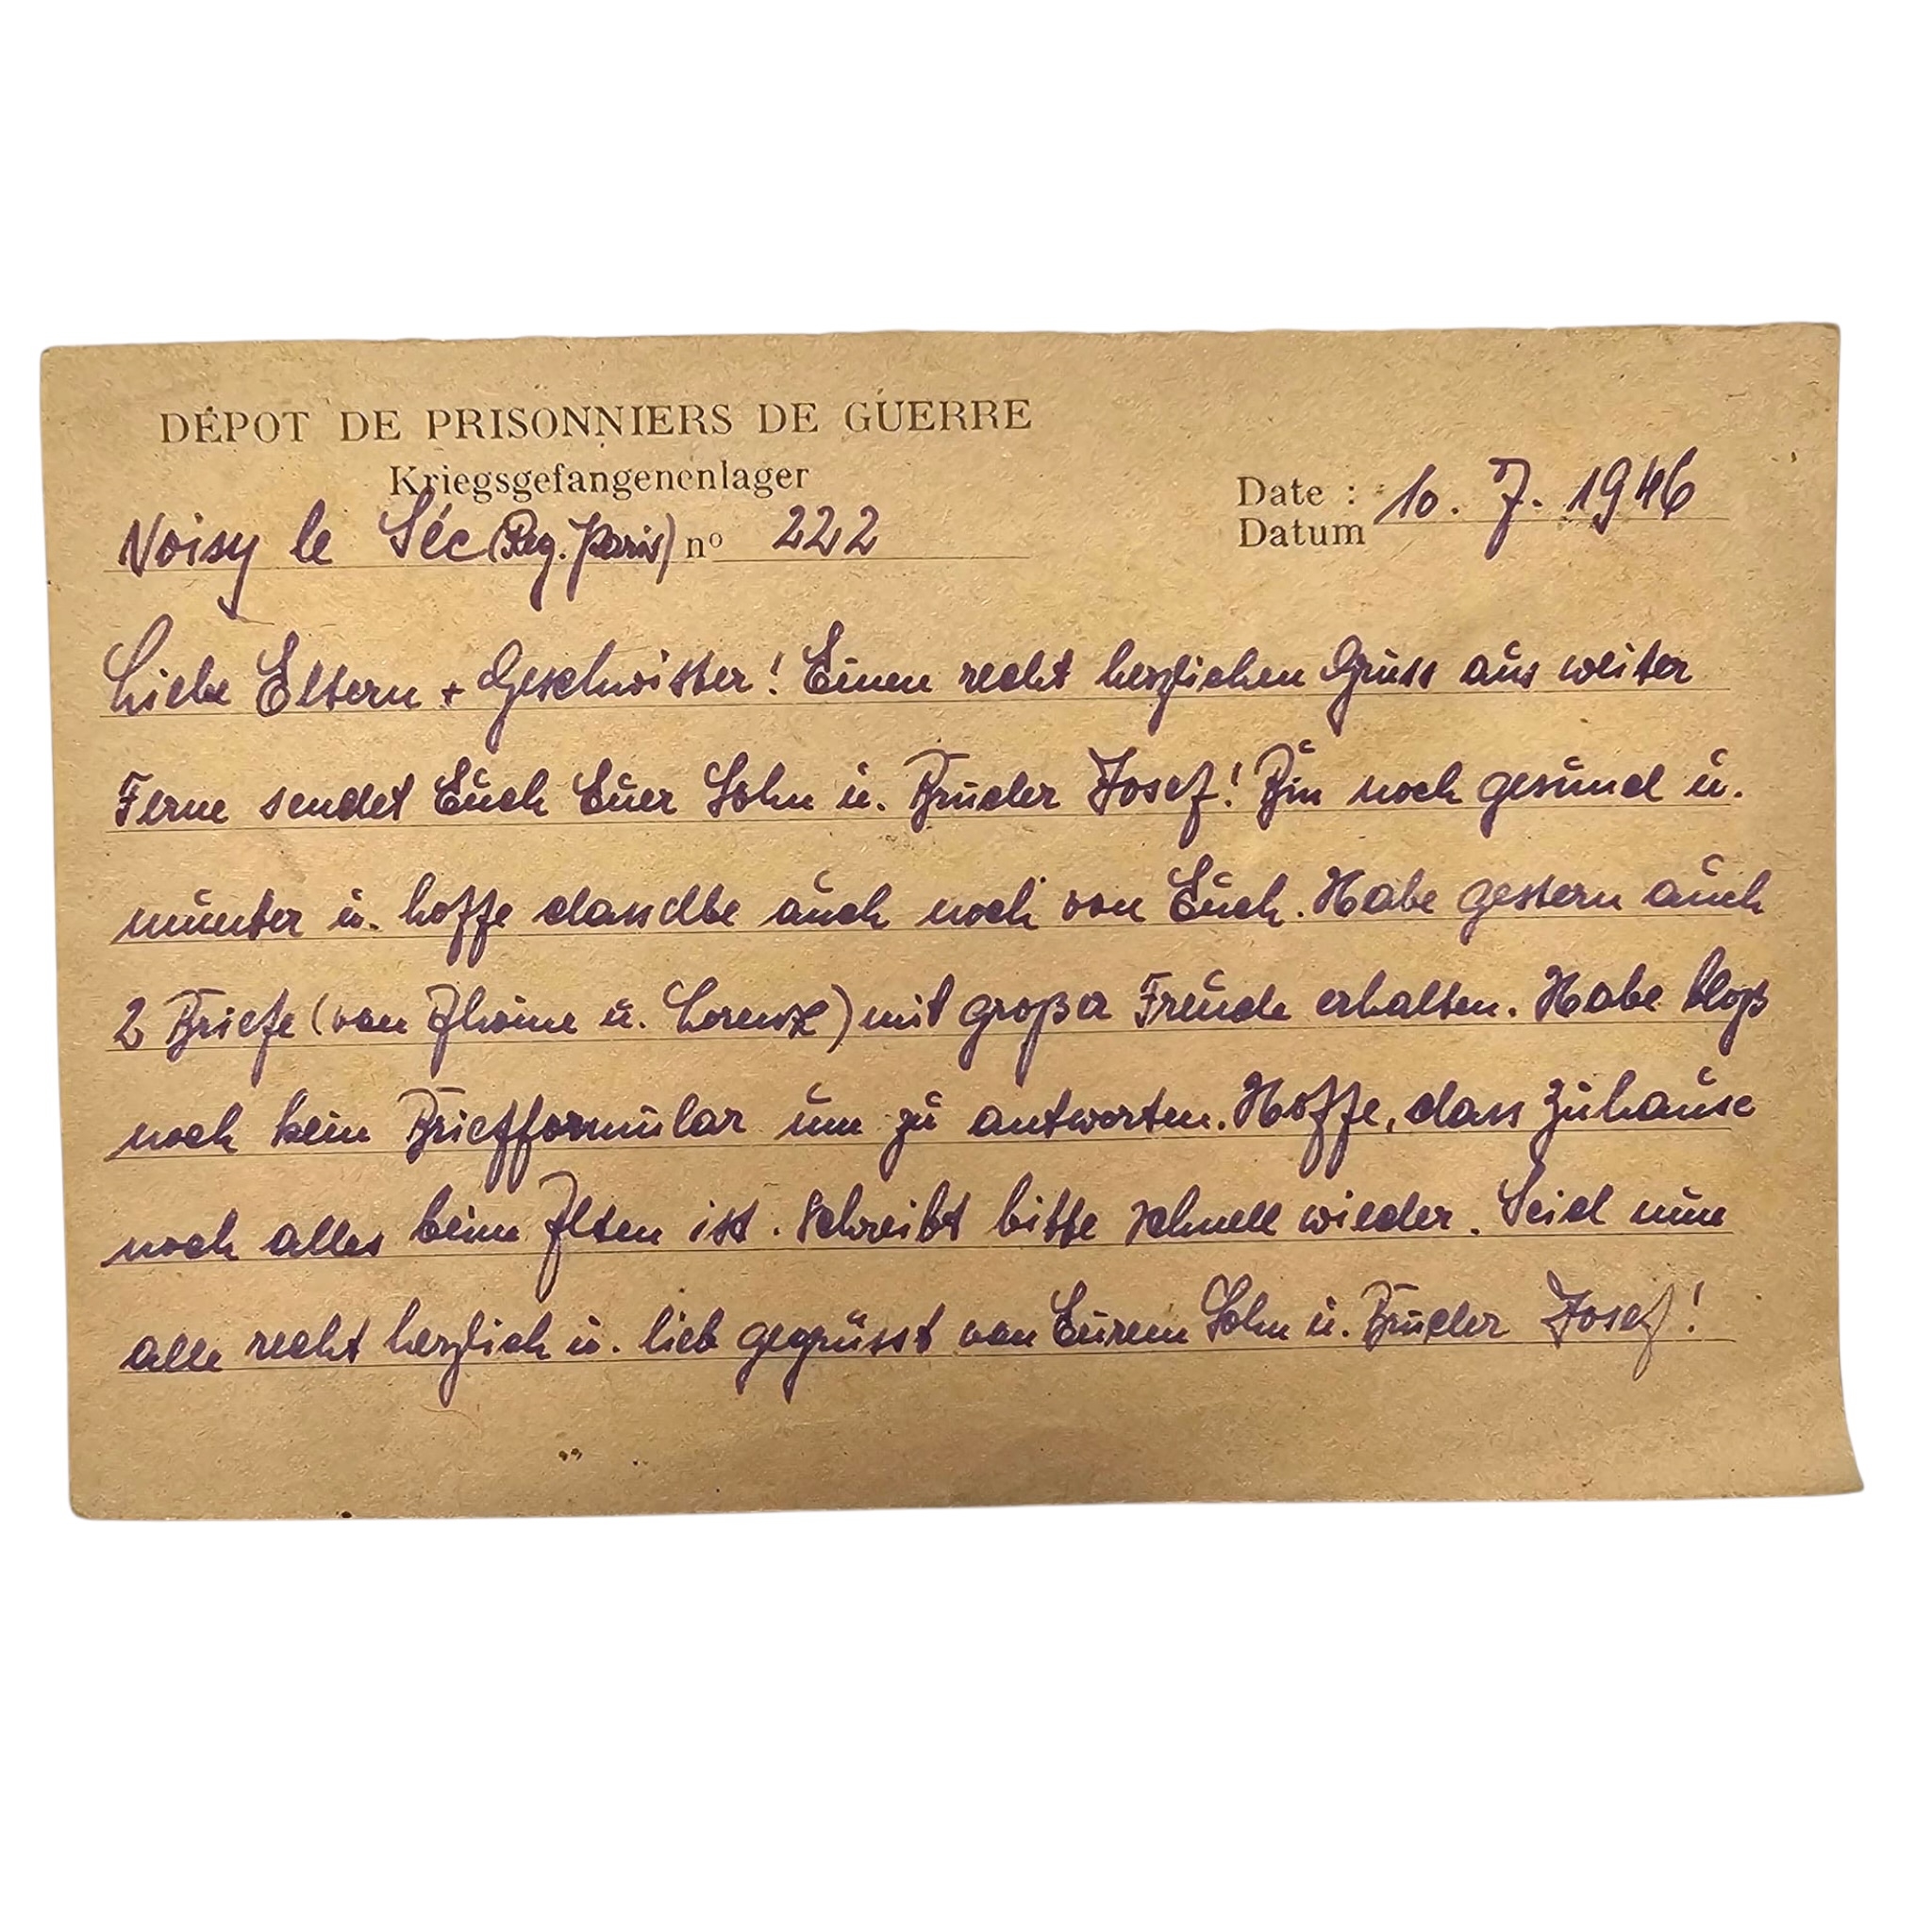 DÉPOT DE PRISONNIERS DE GUERRE
Kriegsgefangenenlager
Noisy le Séc (Reg. Paris) nº 222
Date : 10. 7. 1946
Datum
Liebe Eltern + Geschwister! Einen recht herzlichen Gruss aus weiter
Ferne sendet Euch Euer Sohn u. Bruder Josef! Bin noch gesund u.
munter u. hoffe dasselbe auch noch von Euch. Habe gestern auch
2 Briefe (von u. Lorenz) mit großer Freude erhalten. Habe bloß
noch kein Briefformular um zu antworten. Hoffe, dass zuhause
noch alles beim Alten ist. Schreibt bitte schnell wieder. Seid nun
alle recht herzlich u. lieb gegrüsst von Eurem Sohn u. Bruder Josef!